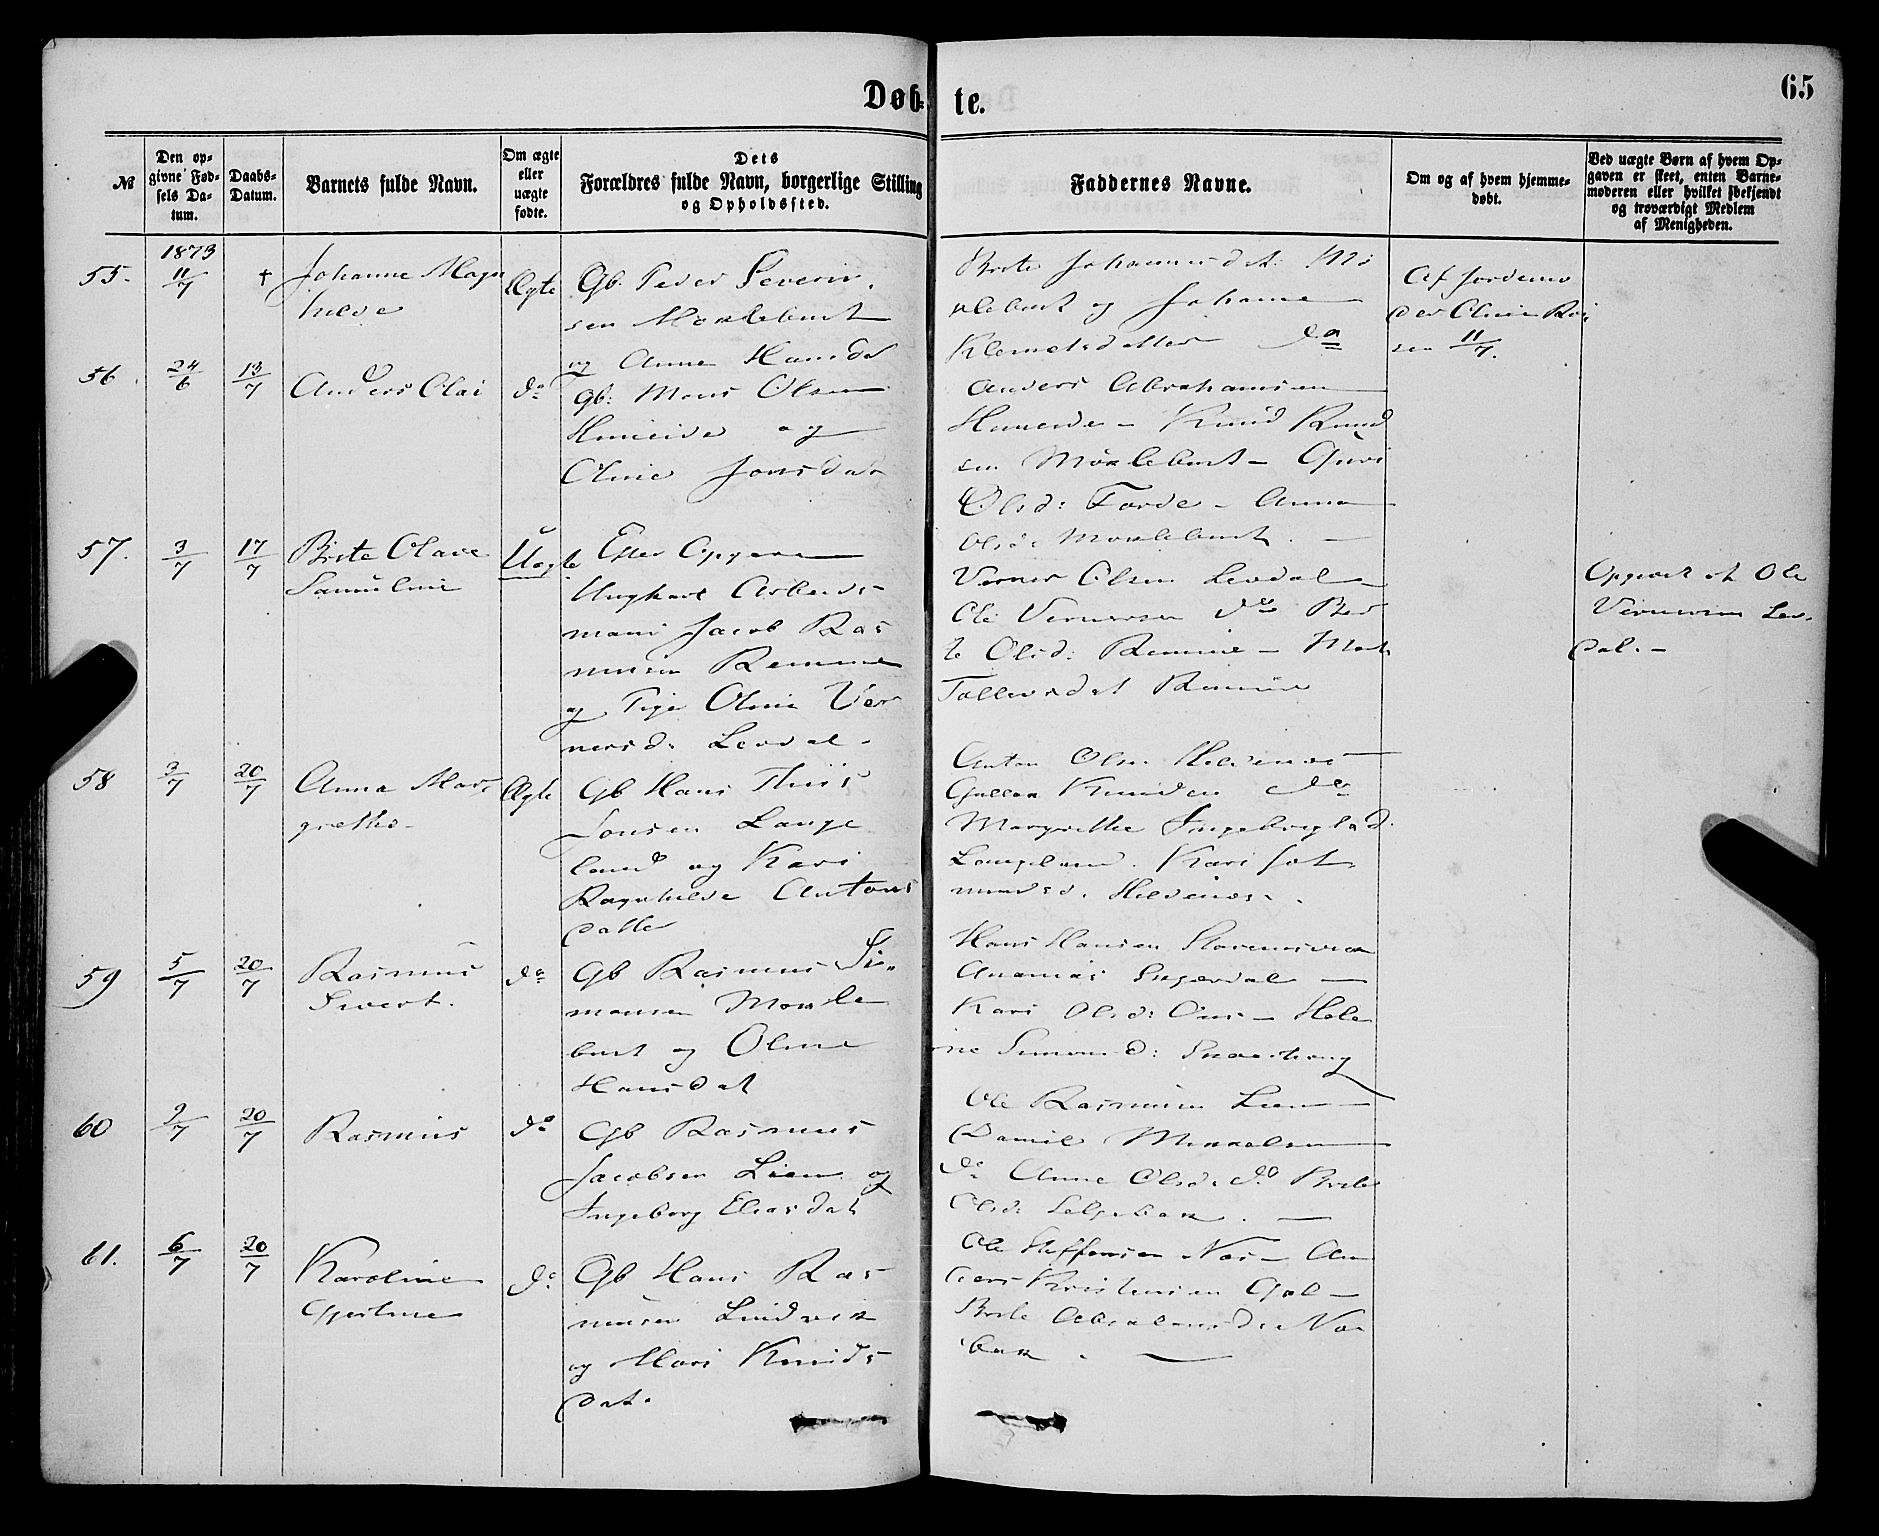 Døb-te.
65
№
Den opgivne Fødsels Datum.
Daabs-Datum.
Barnets fulde Navn.
Om ægte eller uægte fødte.
Dets Forældres fulde Navn, borgerlige Stilling og Opholdssted.
Faddernes Navne.
Om og af hvem hjemmedøbt.
Ved uægte Børn af hvem Opgaven er skeet, enten Barnemoderen eller hvilket bekjendt og troværdigt Medlem af Menigheden.
1873
55.
11/7
†
Johanne Magn
hilde
Ægte
Gb. Peder Severin
sen Moxlebust
og Anne Hansdat
Brite Johannesdat:
klebust og Johanne
Klemetsdatter do
Af Jordemo
der Oline
sen 11/7.
56.
24/6
13/7
Anders Olai
do
Gb: Mons Olsen
Humeide og
Oline Jonsdat
Anders Abrahamsen
Humeide - Knud Knud
sen Moxlebust - Guri
Olsd: Førde - Anna
Olsd: Moxlebust. -
57.
3/7
17/7
Brite Olave
Samueline
Uægte
Efter Opgave
Ungkarl Arbeids-
mand Jacob Ras
musen Remme
og Pige Oline Ver
nersd: Levdal.
Verner Olsen Levdal
Ole Vernersen do Ber
te Olsd: Remme - Mart
Tollevsdat Remme
Opgivet af Ole
Vernersen Lev-
dal. -
58
3/7
20/7
Anna Mar
grethe
Ægte
Gb Hans Thiis
Jonsen Lange
land og Kari
Ragnhilde Antons
datter
Anton Olsen Heldenæs
Knudsen do
Margrethe Ingebrigtsd.
Langeland. Kari Jet
mundsd. Heldenæs.
59
5/7
20/7
Rasmus
Sivert.
do
Gb Rasmus Si-
monsen Moxle
bust og Oline
Hansdat
Hans Hansen
Ananias
Kari Olsd: - Hele
ne Simonsd:
60
2/7
20/7
Rasmus
do
Gb Rasmus
Jacobsen Lien og
Ingeborg Eliasdat
Ole Rasmusen Lien
Daniel Mikkelsen
do Anne Olsd: do Brite
Olsd: Selgebak. -
61.
6/7
20/7
Karoline
Gjertine
do
Gb Hans Ras
musen Lindvik
og Mari Knuds
dat.
Ole Steffensen Næs - An
ders Kristensen
Brite Absalonsd: Næs
bak. -